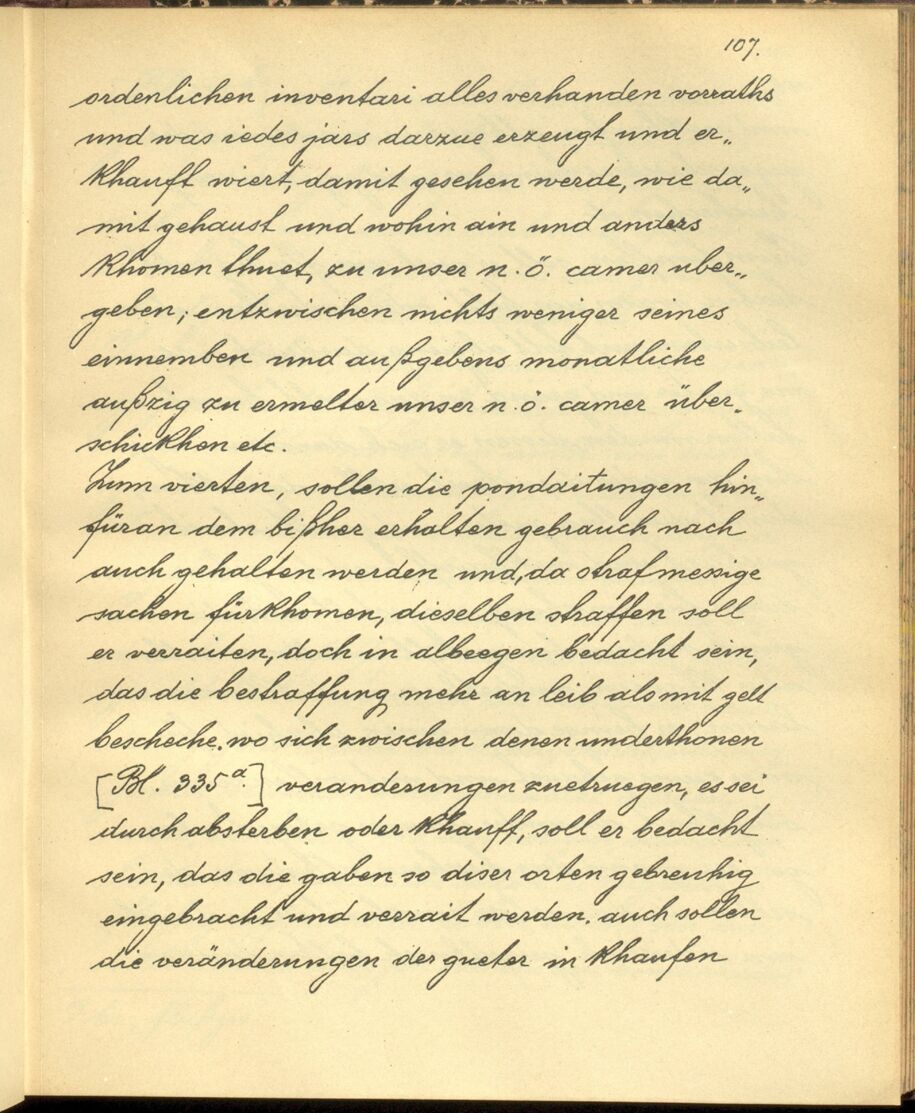 107.
ordenlichen inventari alles verhanden vorraths
und was iedes jars darzue erzeugt und er„
khauft wiert, damit gesehen werde, wie da„
mit gehaust und wohin ain und anders
khomen thuet, zu unser n. ö. camer uber„
geben; entzwischen nichts weniger seines
einnemben und außgebens monatliche
außzig zu ermelter unser n. ö. camer über„
schickhen etc.
Zum vierten, sollen die pondaitungen hin„
füran dem bißher erhalten gebrauch nach
auch gehalten werden und, da strafmessige
sachen fürkhomen, dieselben straffen soll
er verraiten, doch in albeegen bedacht sein,
das die bestraffung mehr an leib als mit gelt
bescheche. wo sich zwischen denen underthonen
[Bl. 335a.] veranderungen zuetruegen, es sei
durch absterben oder khauff, soll er bedacht
sein, das die gaben so diser orten gebreuhig
eingebracht und verrait werden. auch sollen
die veränderungen der gueter in khaufen